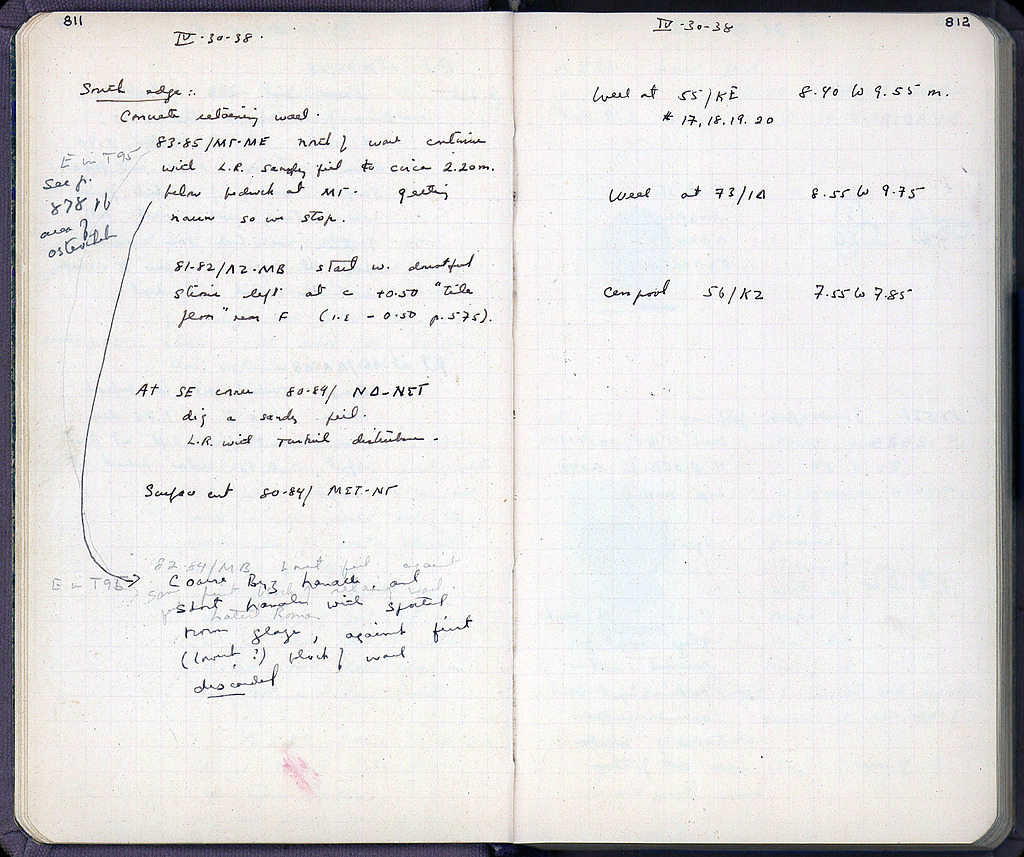 811
IV-30-38.
South edge:
Concrete retaining wall.
83-85/MΣ-ME north of wall continue
E in T95
with L.R. sandy fill to circa 2.20m.
see p.
below bedrock at MΣ. getting
878 ff
narrow so we stop.
area of
81-82/ΛΖ-MB start w. doubtful
strosis left at c +0.50 "tile
floor" near F (i.e. -0.50 p.575).
At SE corner 80-84/ NΔ-
dig a sandy fill.
L.R. with Turkish disturbance.
Surface cut 80-84/
82-84/MB fill against
E in T95
Coarse Byz handle and
Later Roman
short handle with spotted
brown glaze, against first
(lowest?) block of wall
discarded
812
IV-30-38
Well at 55/KE 8.40 to 9.55 m.
# 17, 18, 19. 20
Well at 73/ΙΔ 8.55 to 9.75
Cesspool 56/ΚΖ 7.55 to 7.85